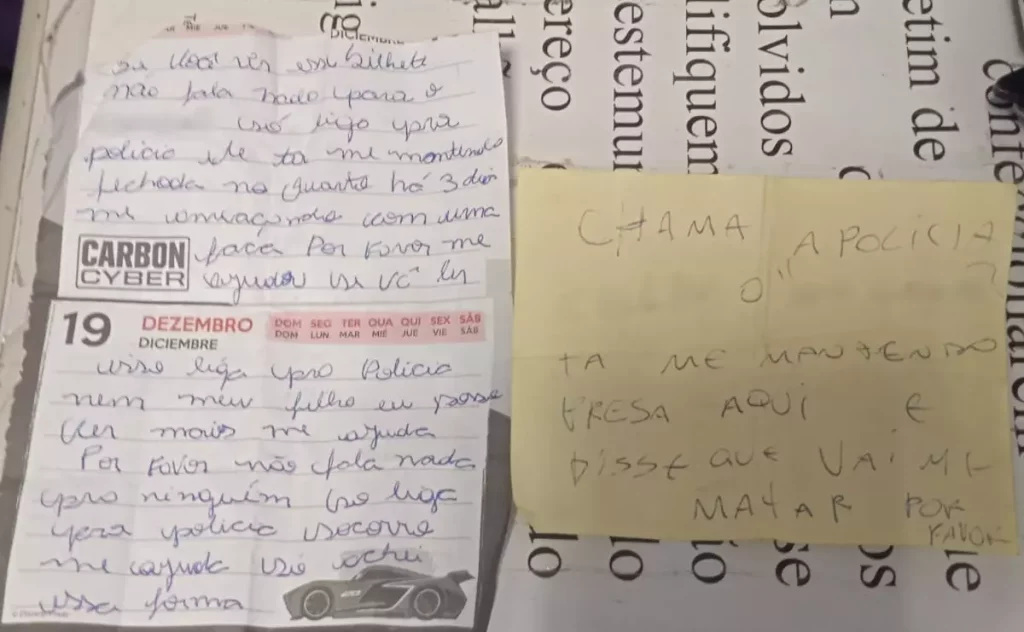 DICIEMBRE
se você ver esse bilhete
não fala nada para o
só liga pra
policia ele ta me mantendo
fechada no quarto há 3 dia
me ameaçando com uma
faca Por Favor me
ajudar se vc ler
CARBON
CYBER
19 DEZEMBRO
DICIEMBRE
DOM SEG TER QUA QUI SEX SÁB
DOM LUN MAR MIÉ JUE VIE SÁB
isso liga pra Policia
nem meu filho eu posso
ver mais me ajuda
Por Favor não fala nada
pra ninguém só liga
pra policia socorro
me ajuda só achei
essa forma
CHAMA A POLICIA
O
TA ME MANTENDO
PRESA AQUI E
DISSE QUE VAI ME
MATAR POR
FAVOR
ereço
estemun
lifiquem
olvidos
etim de